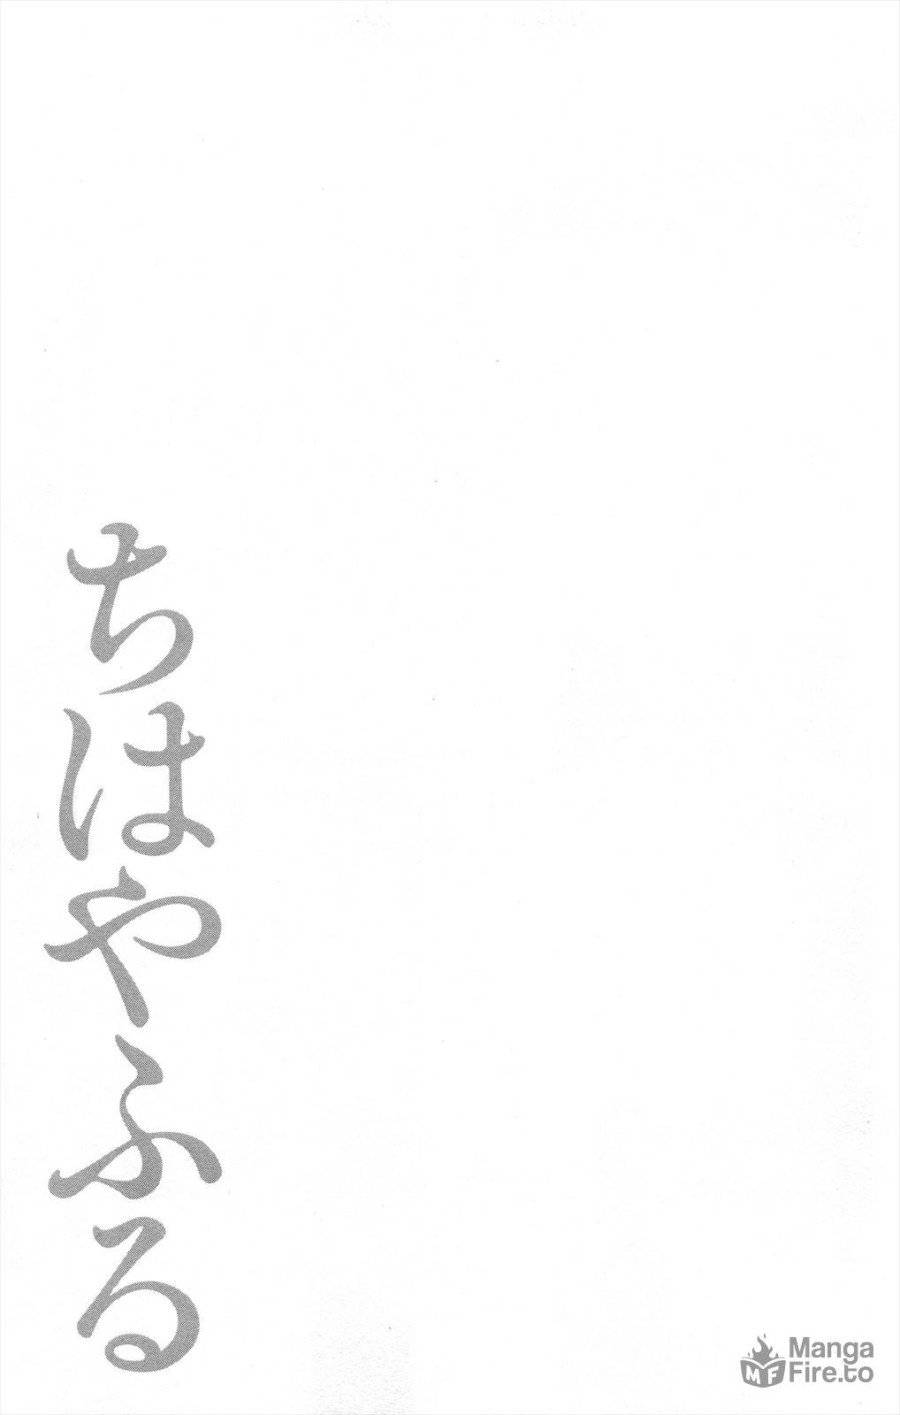 ちはやふる
MF
Manga
Fire.to